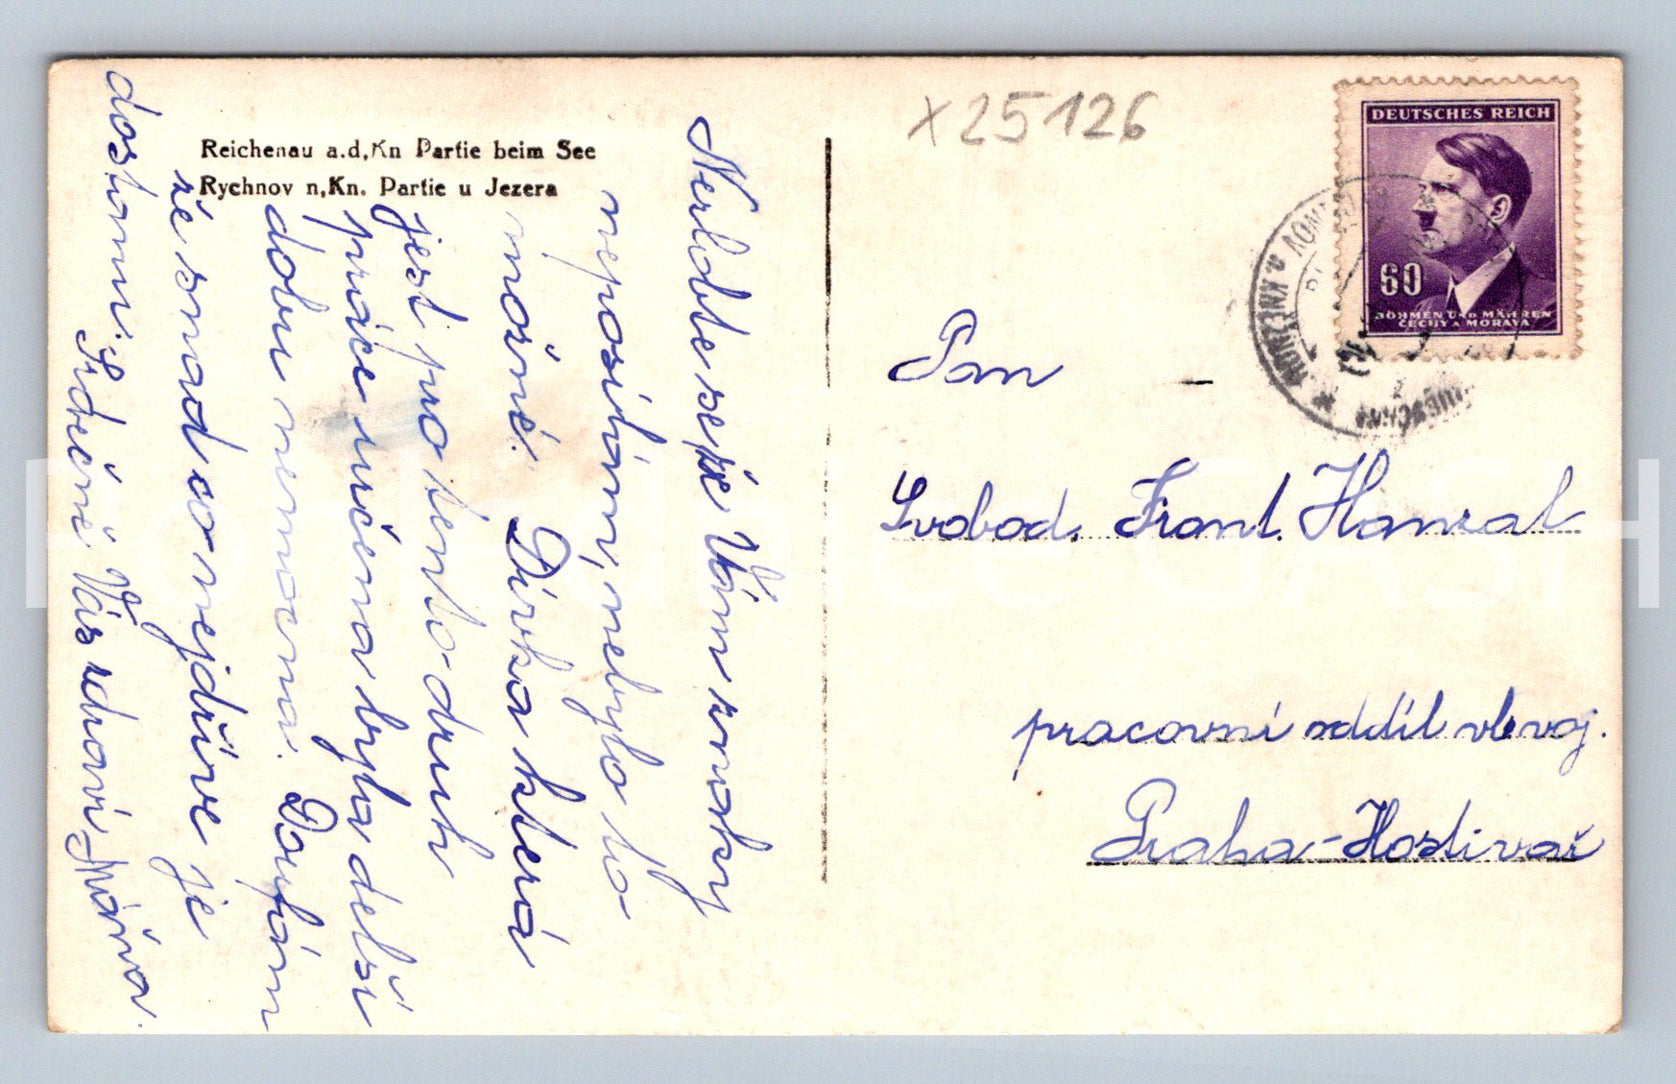 Reichenau a.d,Kn Partie beim See
Rychnov n,Kn. Partie u Jezera
Nerlobte se, že Vám známky
neposílám, nebylo to-
možné. Dívka která
jest pro tento druh
práce určena byla delší
dobu nemocna. Doufám
že snad co nejdříve je
dostanu. Srdečně
Vás zdraví Máňa.
x25126
DEUTSCHES REICH
60
BÖHMEN UND MÄHREN
ČECHY A MORAVA
Pan
Svobod. Frant. Hanzal
pracovní oddíl vl. voj.
Praha-Hostivař